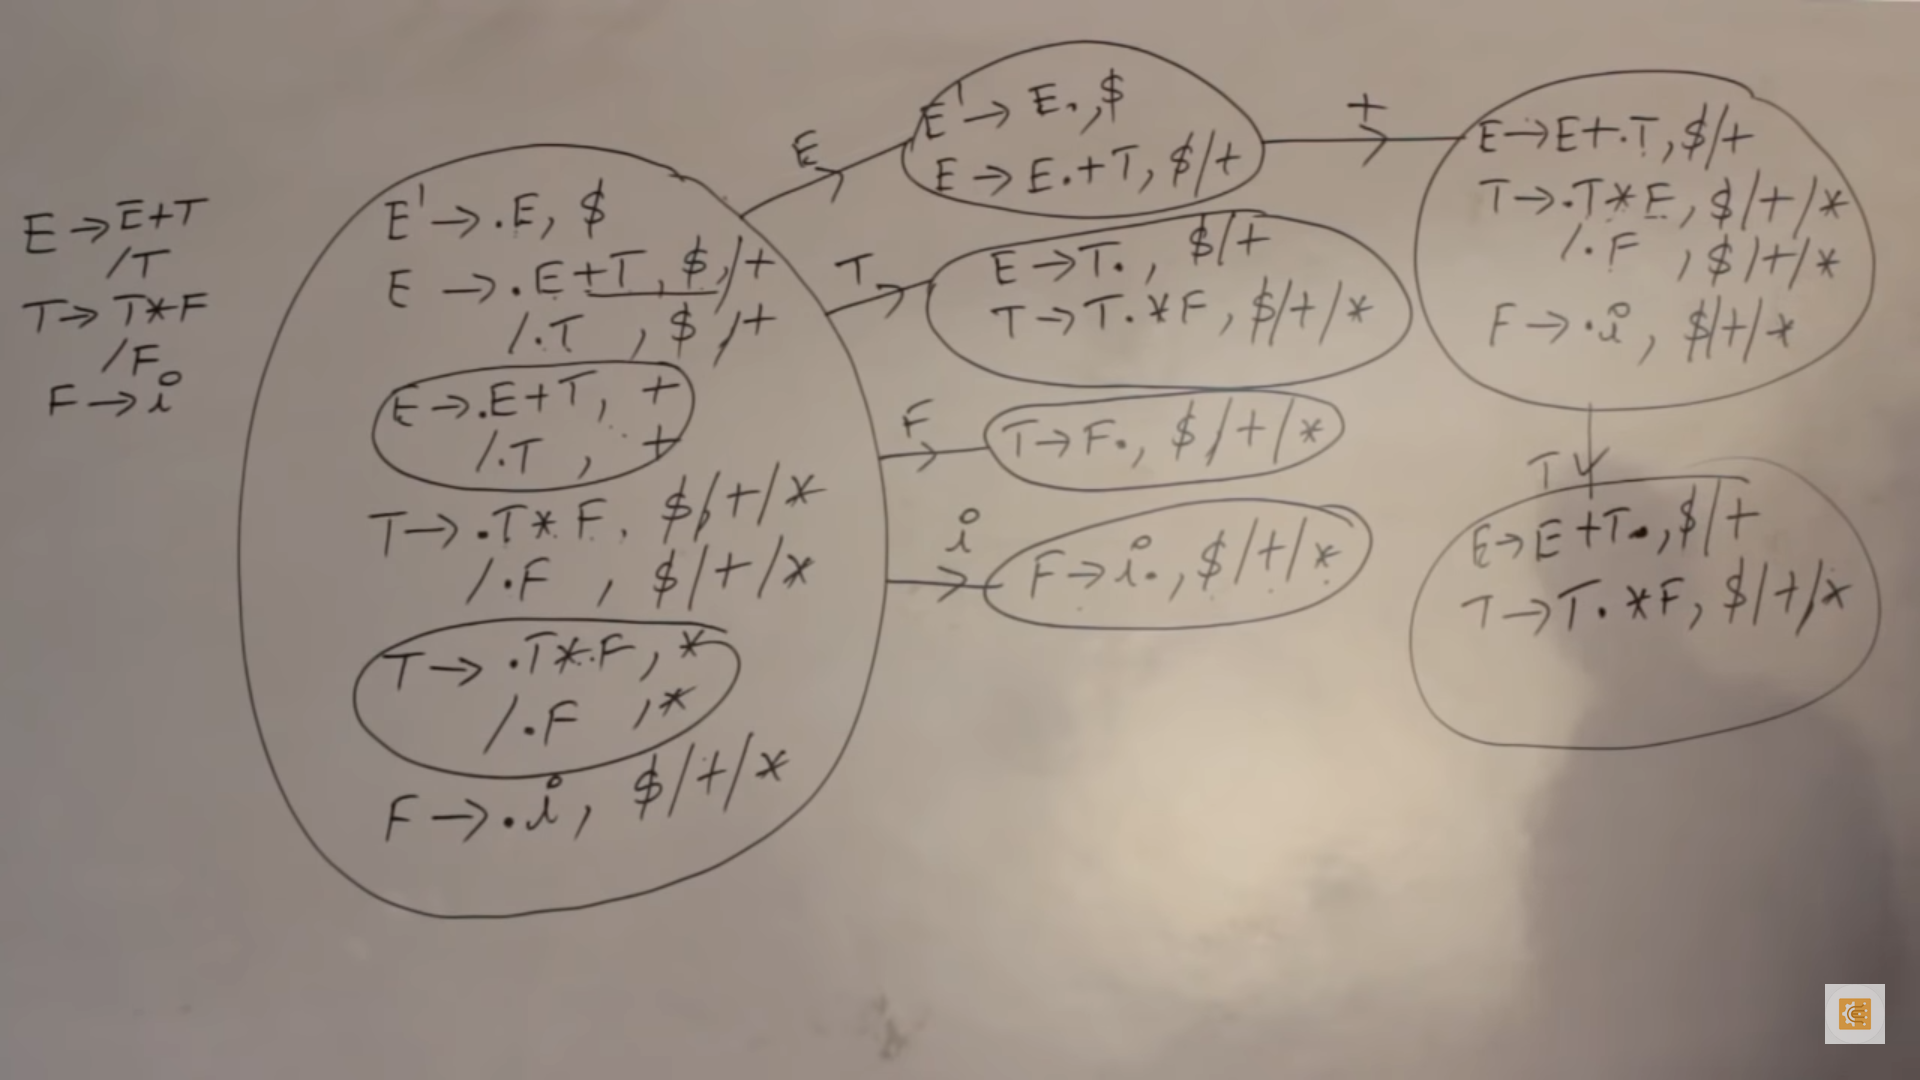 E → E+T
/T
T → T*F
/F
F → i
E' → .E, $
E → .E+T, $,/+
/.T , $,/+
E → .E+T, +
/.T , +
T → .T*F, $/+/*
/.F , $/+/*
T → .T*.F, *
/.F ,*
F → .i, $/+/*
E
E' → E.,$
E → E.+T, $/+
T
E → T., $/+
T → T.*F, $/+/*
F
T → F., $/+/*
i
F → i., $/+/*
+
E → E+.T, $/+
T → .T*F, $/+/*
/.F , $/+/*
F → .i, $/+/*
T
E → E+T., $/+
T → T.*F, $/+/*